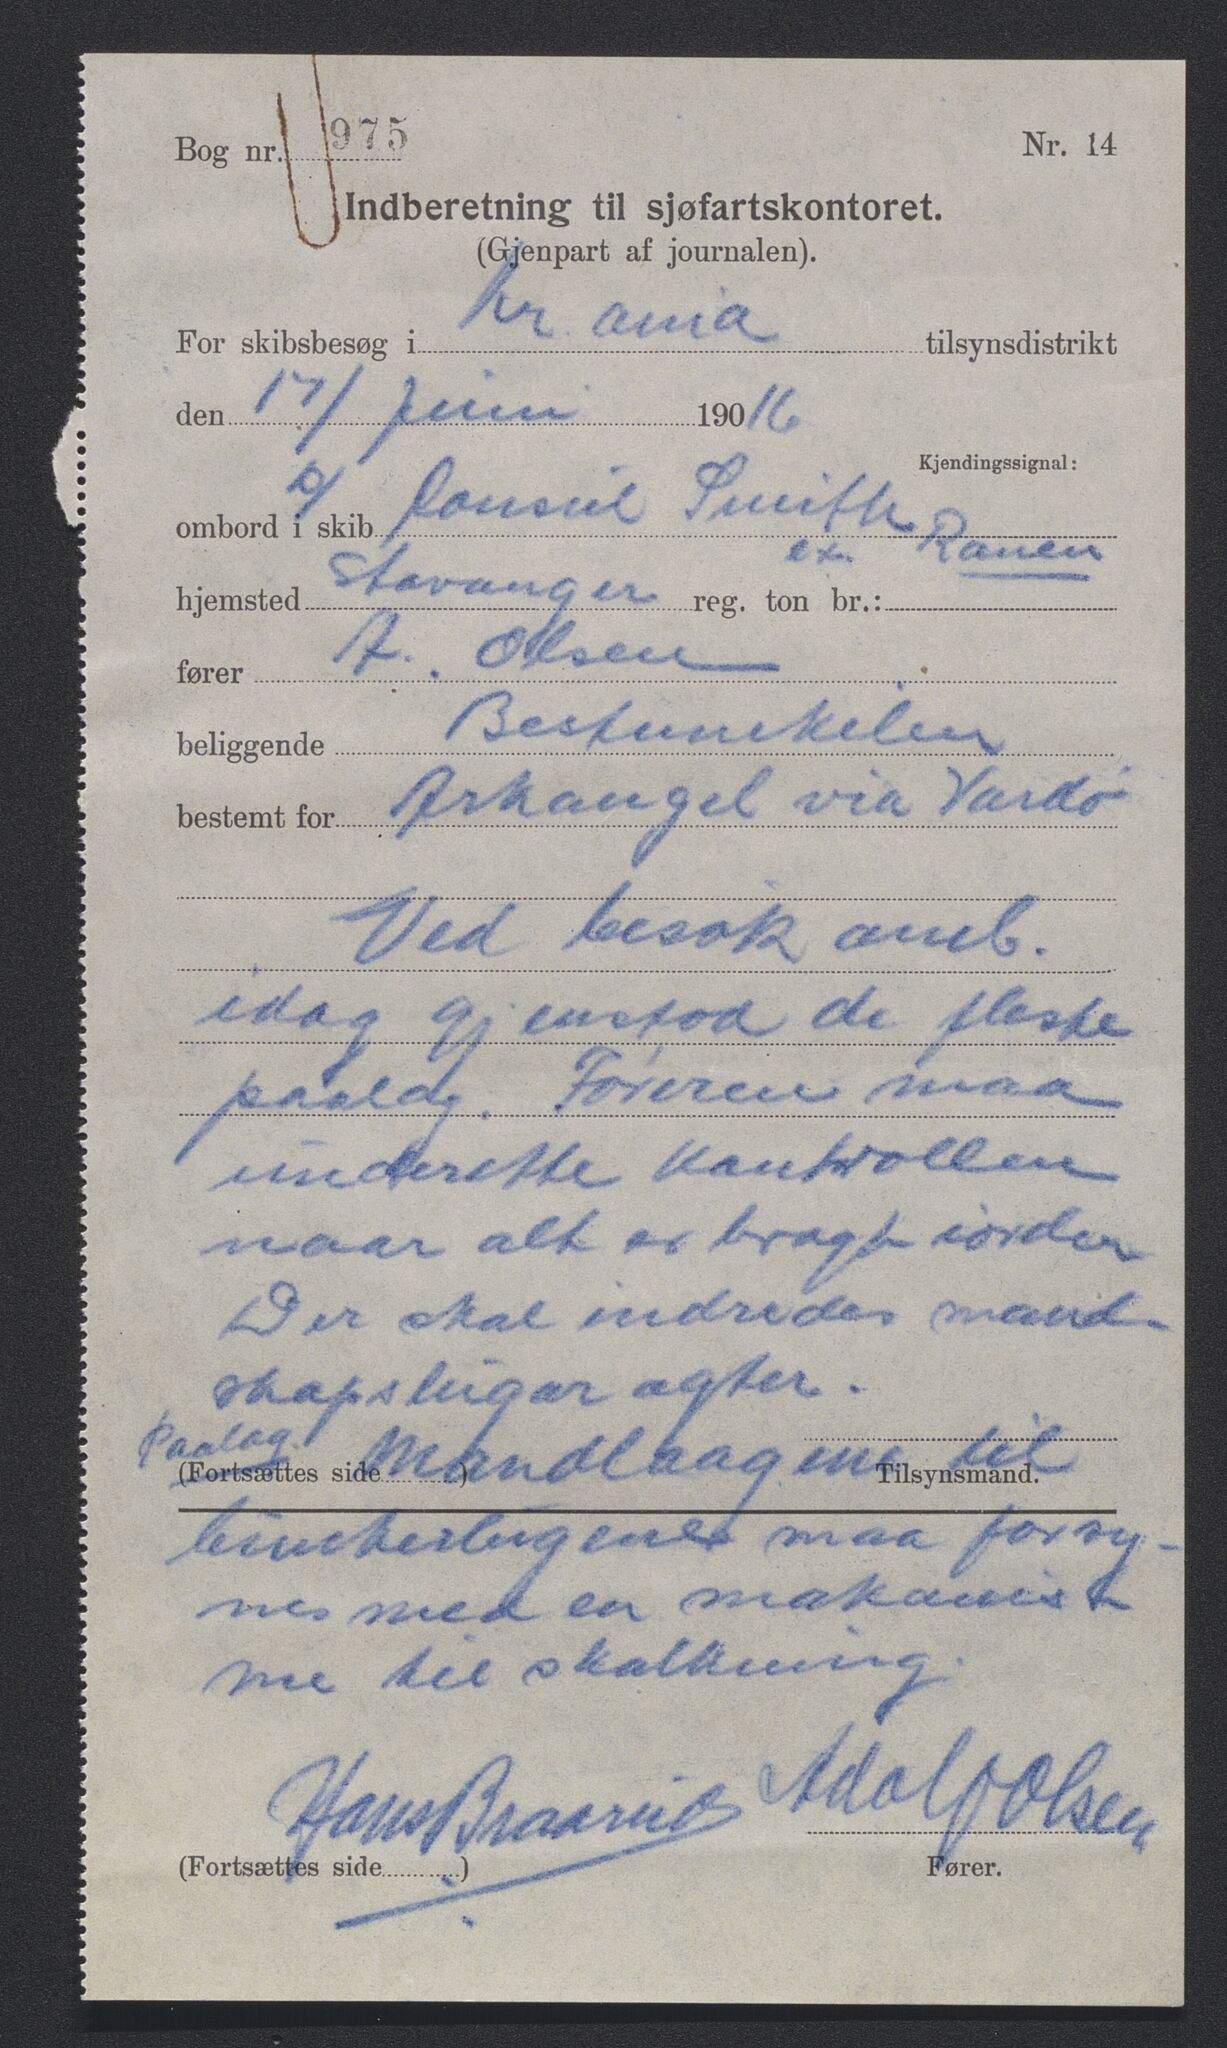 Bog nr. 975 Nr. 14
Indberetning til sjøfartskontoret.
(Gjenpart af journalen).
For skibsbesøg i Kr. ania tilsynsdistrikt
den 17/ juni 190 16
Kjendingssignal:
ombord i skib D/ Consul Smith
ex. Ranen
hjemsted Stavanger reg. ton br.:
fører A. Olsen
beliggende Bestumkilen
bestemt for Arkangel via Vardö
Ved besök omb.
idag gjenstod de fleste
paalæg. Föreren maa
underette kontrollen
naar alt er bragt iorden
Der skal indredes mand-
skapslugar agter.
Paalæg. Mandlaagene til
(Fortsættes side ) Tilsynsmand.
bunkerlugene maa forsy-
nes med en mekanis-
me til skalkning.
Hans Braarud Adolf Olsen
(Fortsættes side ) Fører.